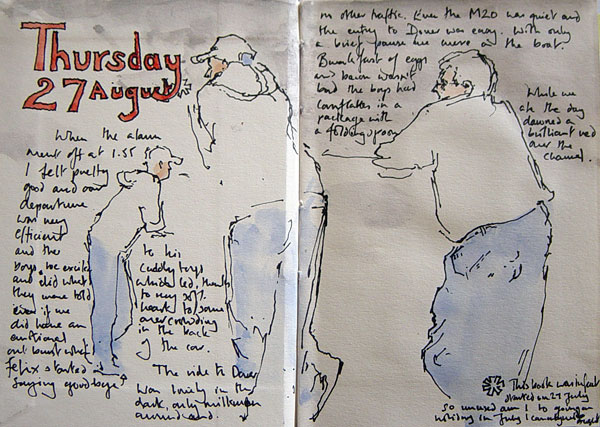 Thursday
27 August
When the alarm
went off at 1.55
I felt pretty
good and our
departure
was very
efficient
and the
boys, so excited
and did what
they were told
even if we
did have an
emotional
out burst when
Felix started
saying goodbye
to his
cuddly toys
which led, thanks
to very soft
heart to some
over crowding
in the back
of the car.
The ride to Dover
was lovely in the
dark, only milkmen
around and
no other traffic. Even the M20 was quiet and
the entry to Dover was easy. With only
a brief pause we were on the boat.
Breakfast of eggs
and bacon wasn't
bad the boys had
cornflakes in a
package with
a folding spoon
While we
ate the day
dawned a
brilliant red
over the
channel.
This book was in fact
started on 27 July
so unused am I to going on
holiday in July I can